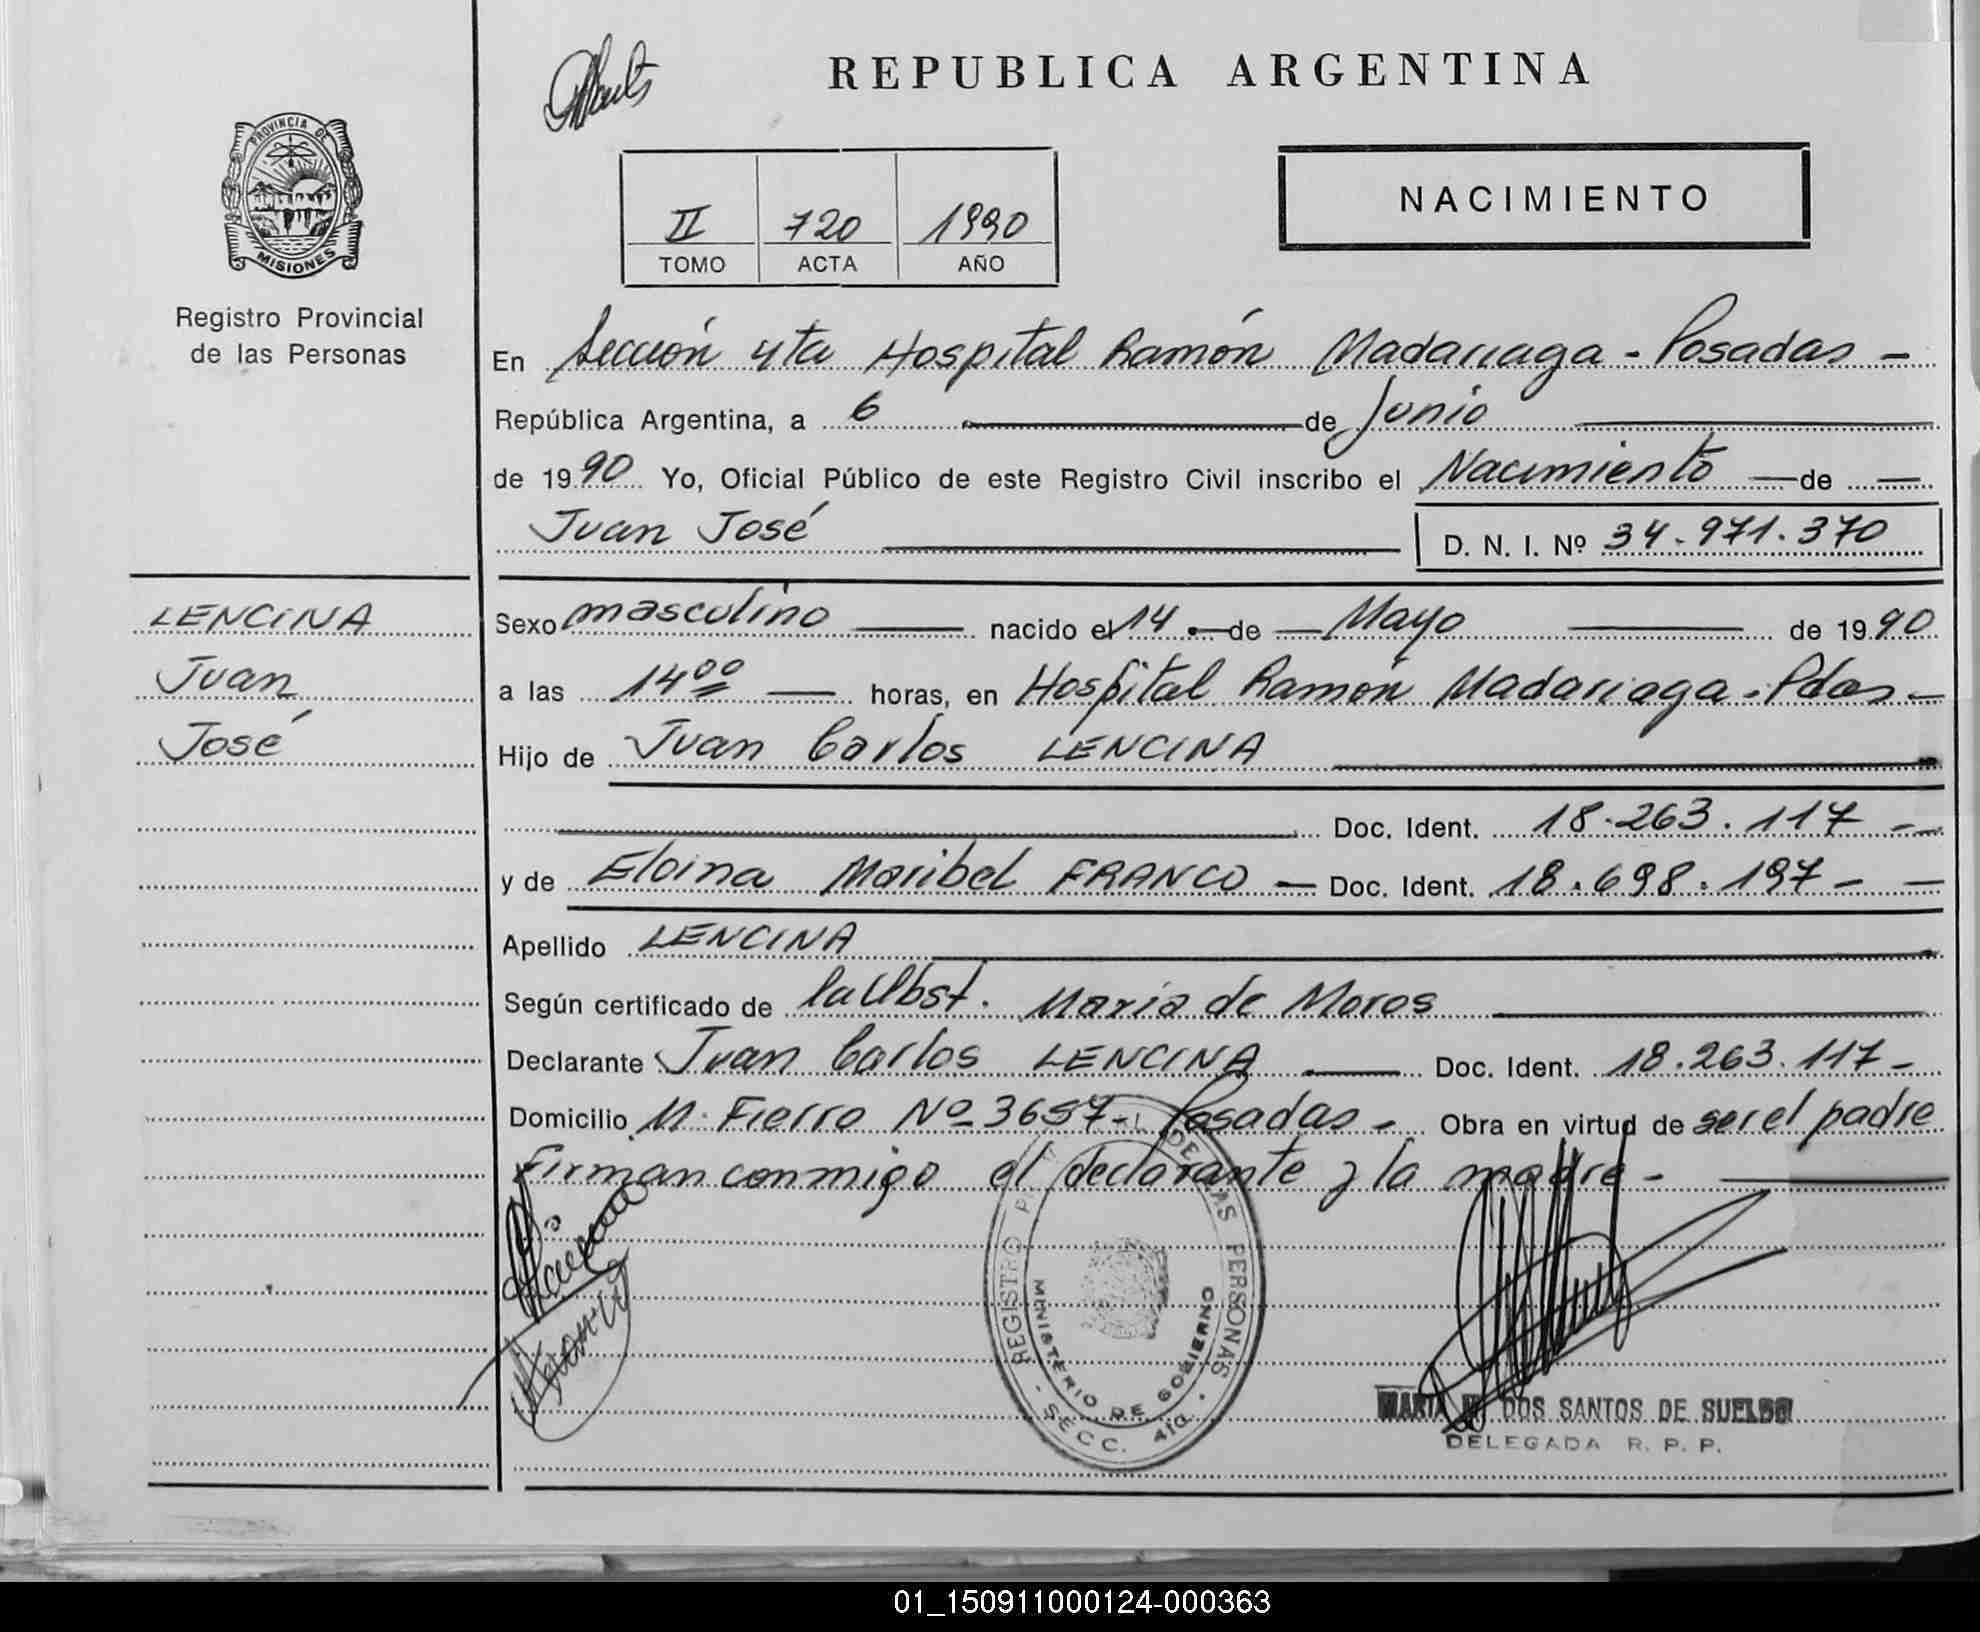 REPUBLICA ARGENTINA
PROVINCIA DE
MISIONES
Registro Provincial
de las Personas
II 720 1990
TOMO ACTA AÑO
NACIMIENTO
En Sección 4ta Hospital Ramón Madariaga - Posadas -
República Argentina, a 6 de Junio
de 1990 Yo, Oficial Público de este Registro Civil inscribo el Nacimiento de
Juan José
D. N. I. Nº 34.971.370
LENCINA
Juan
José
Sexo masculino nacido el 14 de Mayo de 1990
a las 14 00 horas, en Hospital Ramón Madariaga - Pdas -
Hijo de Juan Carlos LENCINA
Doc. Ident. 18.263.117 -
y de Eloina Maribel FRANCO - Doc. Ident. 18.698.197 -
Apellido LENCINA
Según certificado de la Obst. María de Moros
Declarante Juan Carlos LENCINA Doc. Ident. 18.263.117 -
Domicilio M. Fierro Nº 3657 - Posadas - Obra en virtud de ser el padre
Firman conmigo el declarante y la madre -
REGISTRO DE LAS PERSONAS
MINISTERIO DE GOBIERNO
- SECC. 4ta. -
MARIA DOS SANTOS DE SUELDO
DELEGADA R. P. P.
01_150911000124-000363